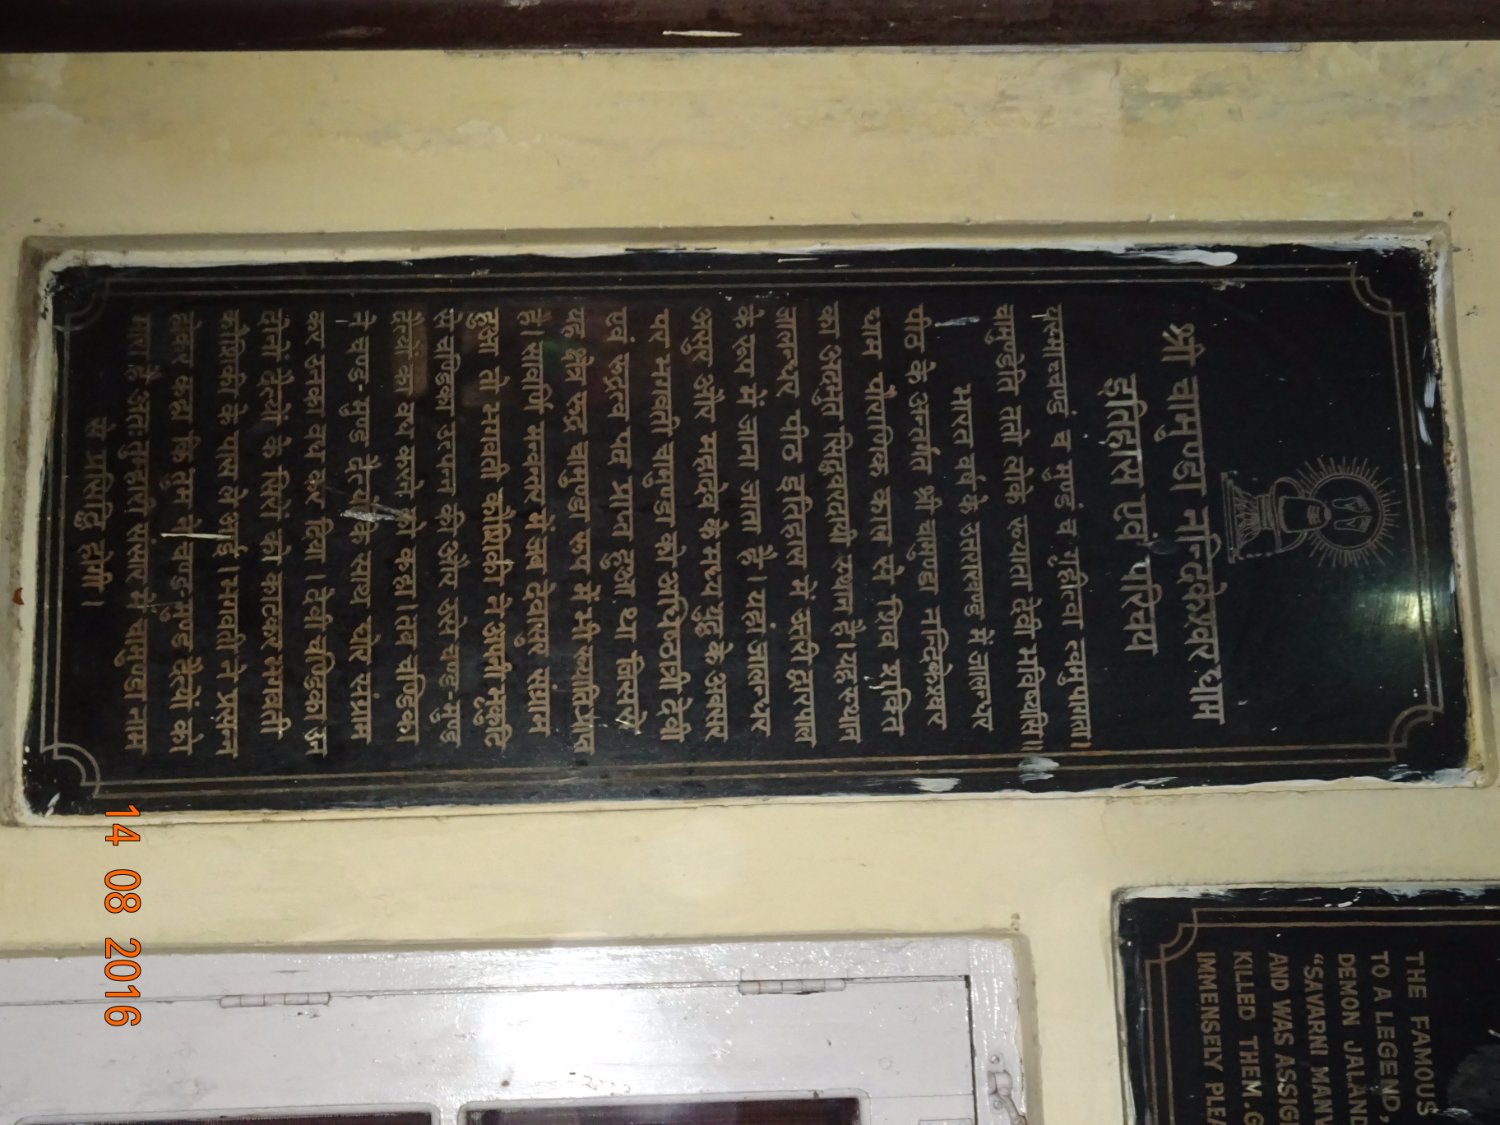 श्री चामुण्डा नन्दिकेश्वर धाम
इतिहास एवं परिचय
यस्माच्चण्डं च मुण्डं च गृहीत्वा त्वमुपागता।
चामुण्डेति ततो लोके ख्याता देवी भविष्यसि॥
भारत वर्ष के उतराखण्ड में जालन्धर
पीठ के अन्तर्गत श्री चामुण्डा नन्दिकेश्वर
धाम पौराणिक काल से शिव शक्ति
का अदभुत सिद्धवरदायी स्थान है। यह स्थान
जालन्धर पीठ इतिहास में उतरी द्वारपाल
के रूप में जाना जाता है। यहां जालन्धर
असुर और महादेव के मध्य युद्ध के अवसर
पर भगवती चामुण्डा को अधिष्ठात्री देवी
एवं रुद्रत्व पद प्राप्त हुआ था जिससे
यह क्षेत्र रुद्र चामुण्डा रूप में भी ख्याति प्राप्त
है। सावर्णि मन्वन्तर में जब देवासुर संग्राम
हुआ तो भगवती कौशिकी ने अपनी भृकुटि
से चण्डिका उत्पन्न की और उसे चण्ड-मुण्ड
दैत्यों का वध करने को कहा। तब चण्डिका
ने चण्ड-मुण्ड दैत्यों के साथ घोर संग्राम
कर उनका वध कर दिया। देवी चण्डिका उन
दोनों दैत्यों के सिरों को काटकर भगवती
कौशिकी के पास ले आई। भगवती ने प्रसन्न
होकर कहा कि तुम ने चण्ड-मुण्ड दैत्यों को
मारा है अतः तुम्हारी संसार में चामुण्डा नाम
से प्रसिद्धि होगी।
THE FAMOUS
TO A LEGEND,
DEMON JALAND
"SAVARNI MANV
AND WAS ASSIG
KILLED THEM.G
IMMENSELY PLEA
14 08 2016